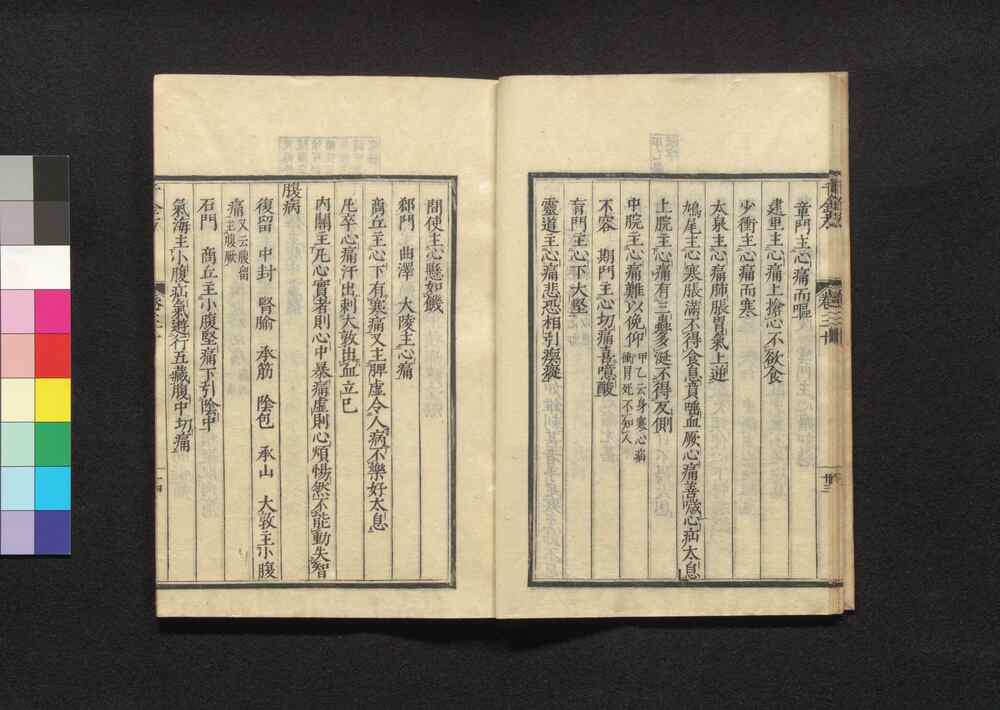 章門主心痛而嘔
建里主心痛上搶心不欲食
少衝主心痛而寒
太泉主心痛肺脹胃氣上逆
鳩尾主心寒脹滿不得食息賁唾血厥心痛善噦心疝太息
上脘主心痛有三蟲多涎不得反側
中脘主心痛難以俛仰甲乙云身寒心痛衝冒死不知人
不容 期門主心切痛喜噫酸
肓門主心下大堅
靈道主心痛悲恐相引瘈瘲
間使主心懸如饑
郄門 曲澤 大陵主心痛
商丘主心下有寒痛又主脾虛令人病不樂好太息
凡卒心痛汗出刺大敦出血立已
內關主凡心實者則心中暴痛虛則心煩惕然不能動失智
腹病
復留 中封 腎腧 承筋 陰包 承山 大敦主小腹
痛又云復留主腹厥
石門 商丘主小腹堅痛下引陰中
氣海主小腹疝氣遊行五藏腹中切痛
卷三十